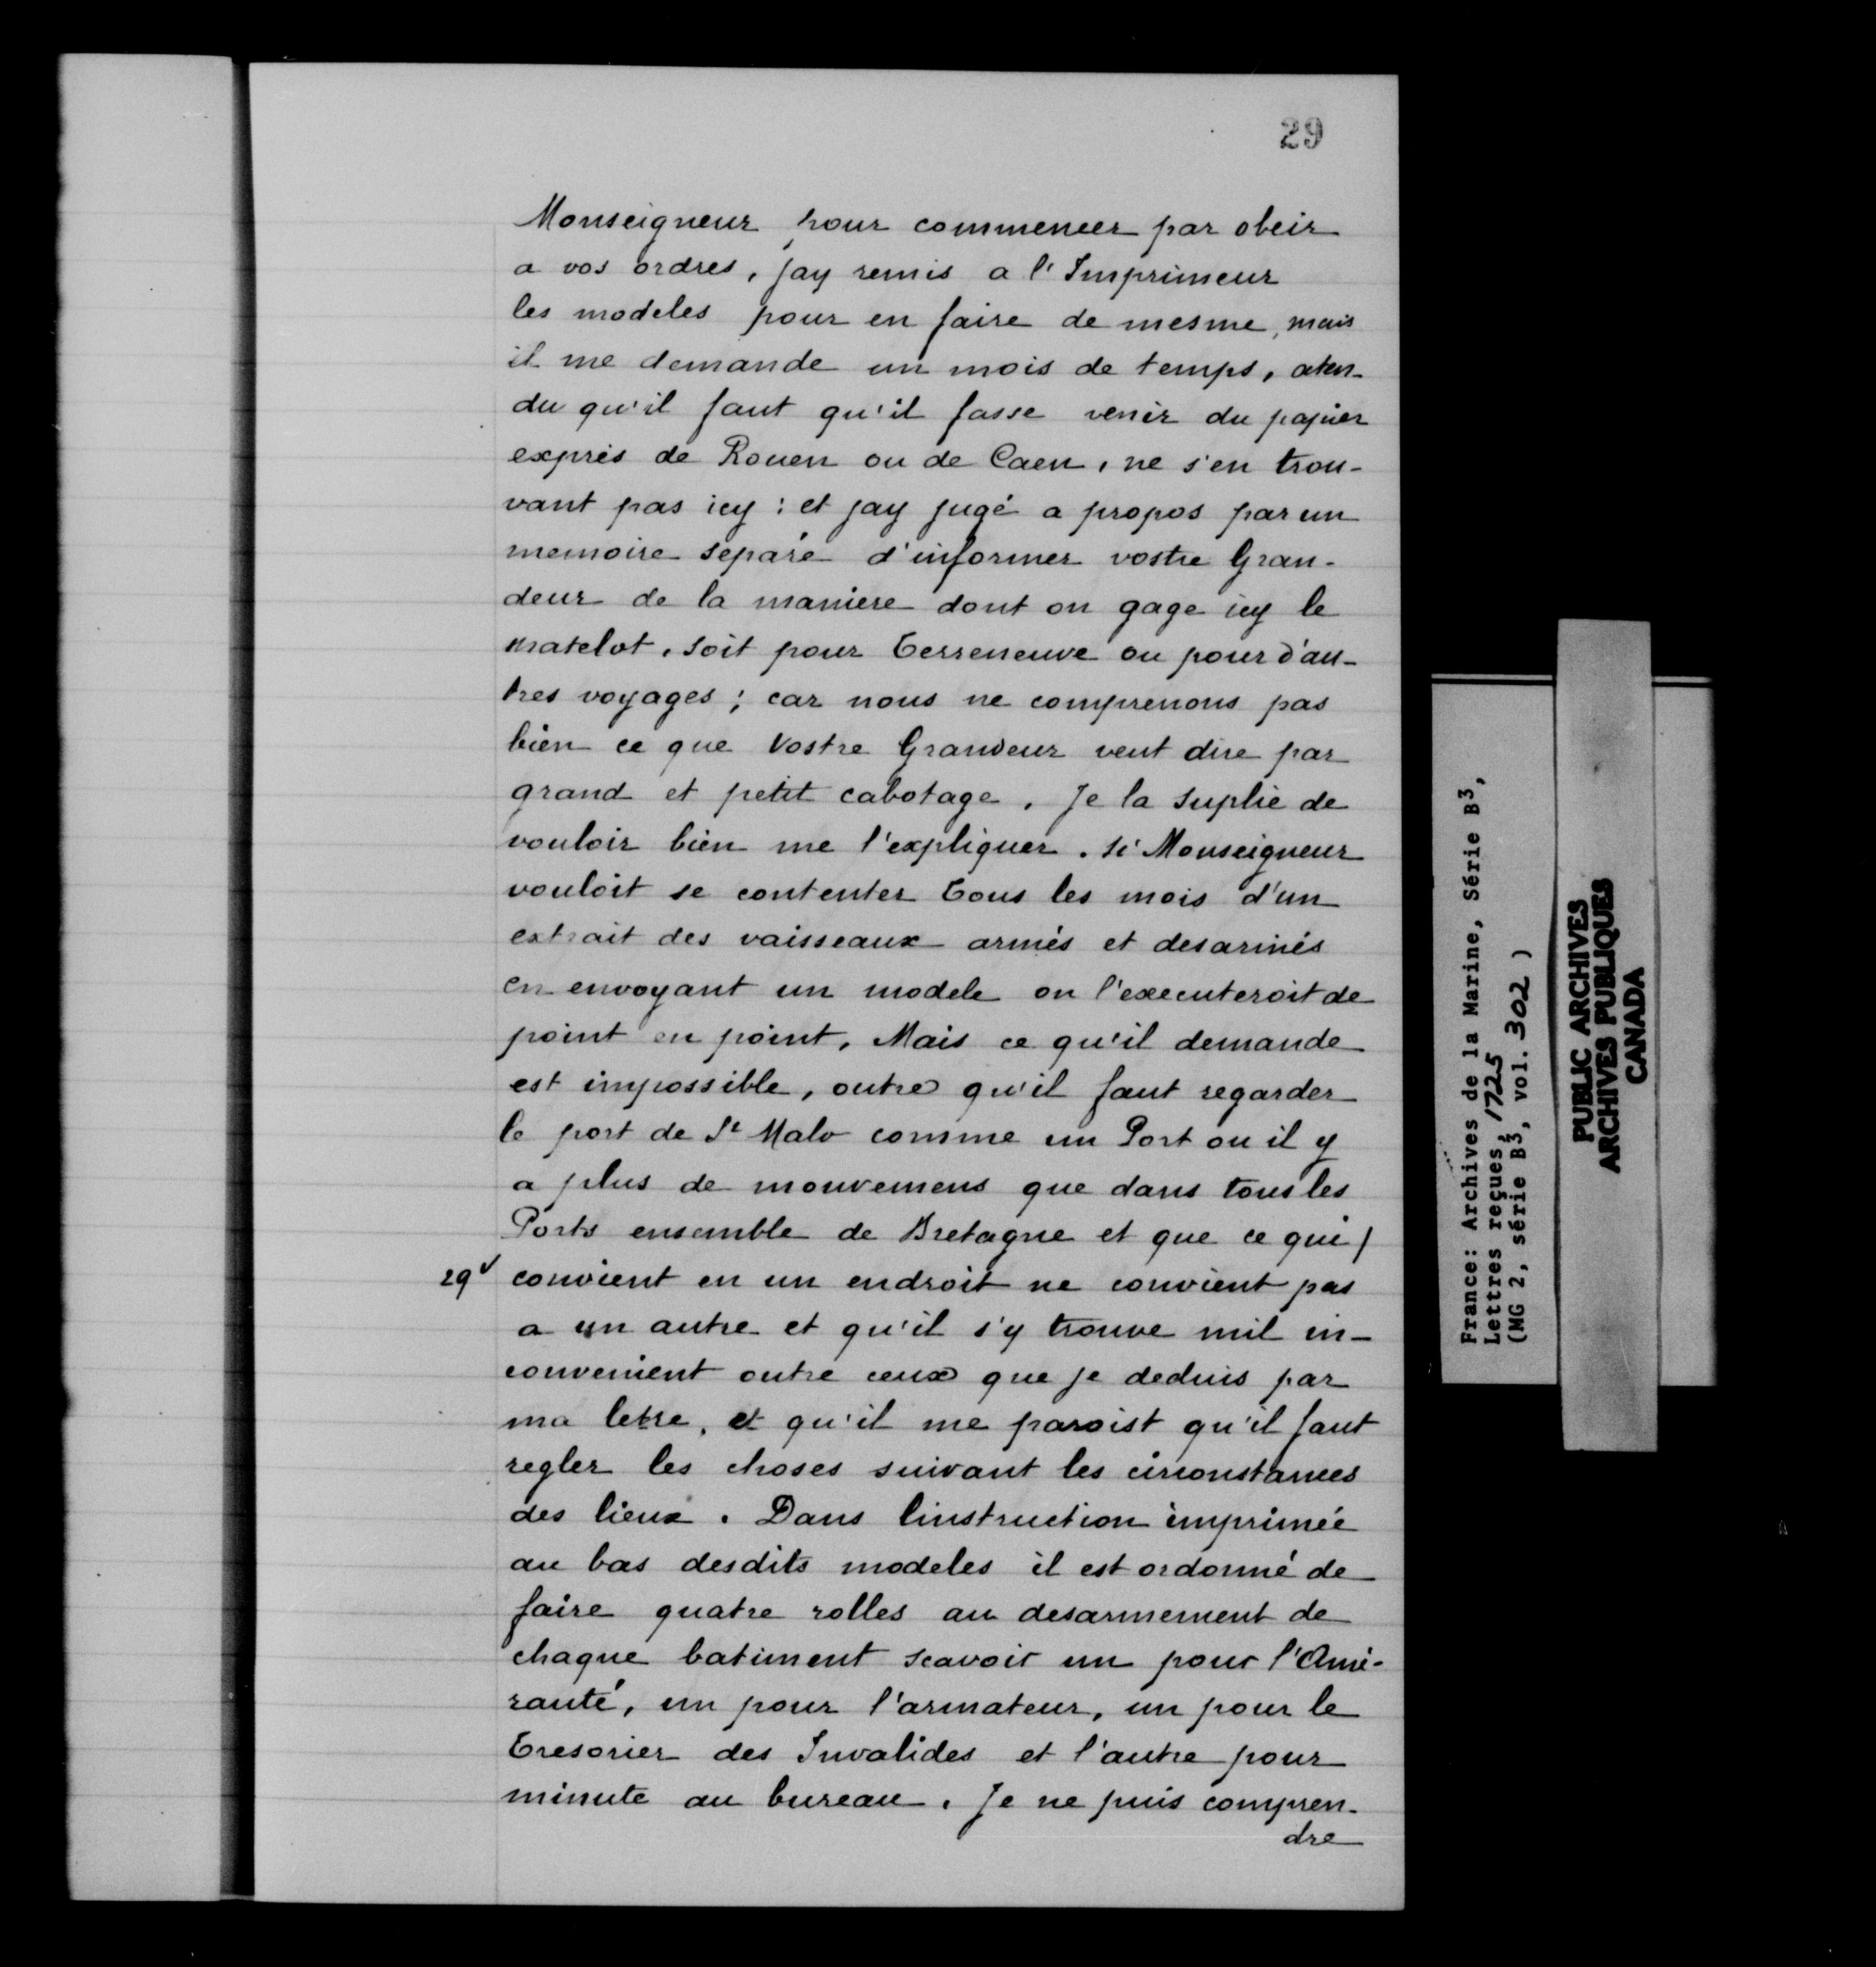 29
Monseigneur, pour commencer par obeir
a vos ordres, jay remis a l'Imprimeur
les modeles pour en faire de mesme, mais
il me demande un mois de temps, aten-
du qu'il faut qu'il fasse venir du papier
exprès de Rouen ou de Caen, ne s'en trou-
vant pas icy : et jay jugé a propos par un
memoire separé d'informer vostre Gran-
deur de la maniere dont on gage icy le
matelot, soit pour Terreneuve ou pour d'au-
tres voyages ; car nous ne comprenons pas
bien ce que Vostre Grandeur veut dire par
grand et petit cabotage. Je la suplie de
vouloir bien me l'expliquer. Si Monseigneur
vouloit se contenter tous les mois d'un
extrait des vaisseaux armés et desarmés
en envoyant un modele on l'executeroit de
point en point, Mais ce qu'il demande
est impossible, outre qu'il faut regarder
le port de St Malo comme un Port ou il y
a plus de mouvemens que dans tous les
Ports ensemble de Bretagne et que ce qui /
29v convient en un endroit ne convient pas
a un autre et qu'il s'y trouve mil in-
convenient outre ceux que je deduis par
ma letre, et qu'il me paroist qu'il faut
regler les choses suivant les circonstances
des lieux. Dans linstruction imprimée
au bas desdits modeles il est ordonné de
faire quatre rolles au desarmement de
chaque batiment scavoir un pour l'Ami-
rauté, un pour l'armateur, un pour le
Tresorier des Invalides et l'autre pour
minute au bureau. Je ne puis compren-
dre
France: Archives de la Marine, Série B3,
Lettres reçues, 1725
(MG 2, série B3, vol. 302 )
PUBLIC ARCHIVES
ARCHIVES PUBLIQUES
CANADA